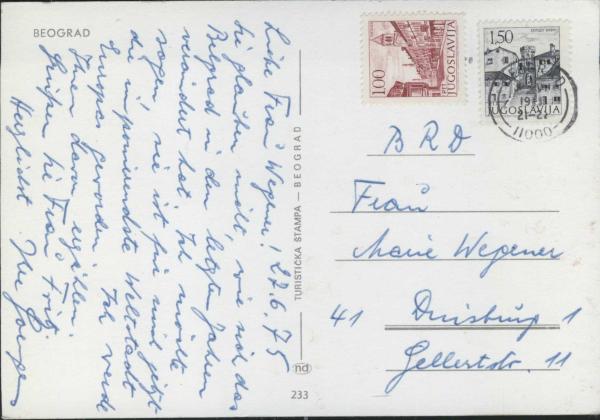 BEOGRAD
Liebe Frau Wegener! 27.6.75
Sie glauben nicht, wie sich das
Belgrad in den letzten Jahren
verändert hat. Ich möchte
sagen, sie ist für mich jetzt
die imponierendste Weltstadt
Europas geworden. Ich werde
Ihnen davon erzählen.
Grüßen Sie Frau Fritz.
Herzlichst Ihr
TURISTIČKA ŠTAMPA — BEOGRAD
nd
233
1.00
JUGOSLAVIJA
1.50
JUGOSLAVIJA
11000
BRD
Frau
Marie Wegener
41 Duisburg 1
Gellertstr. 11